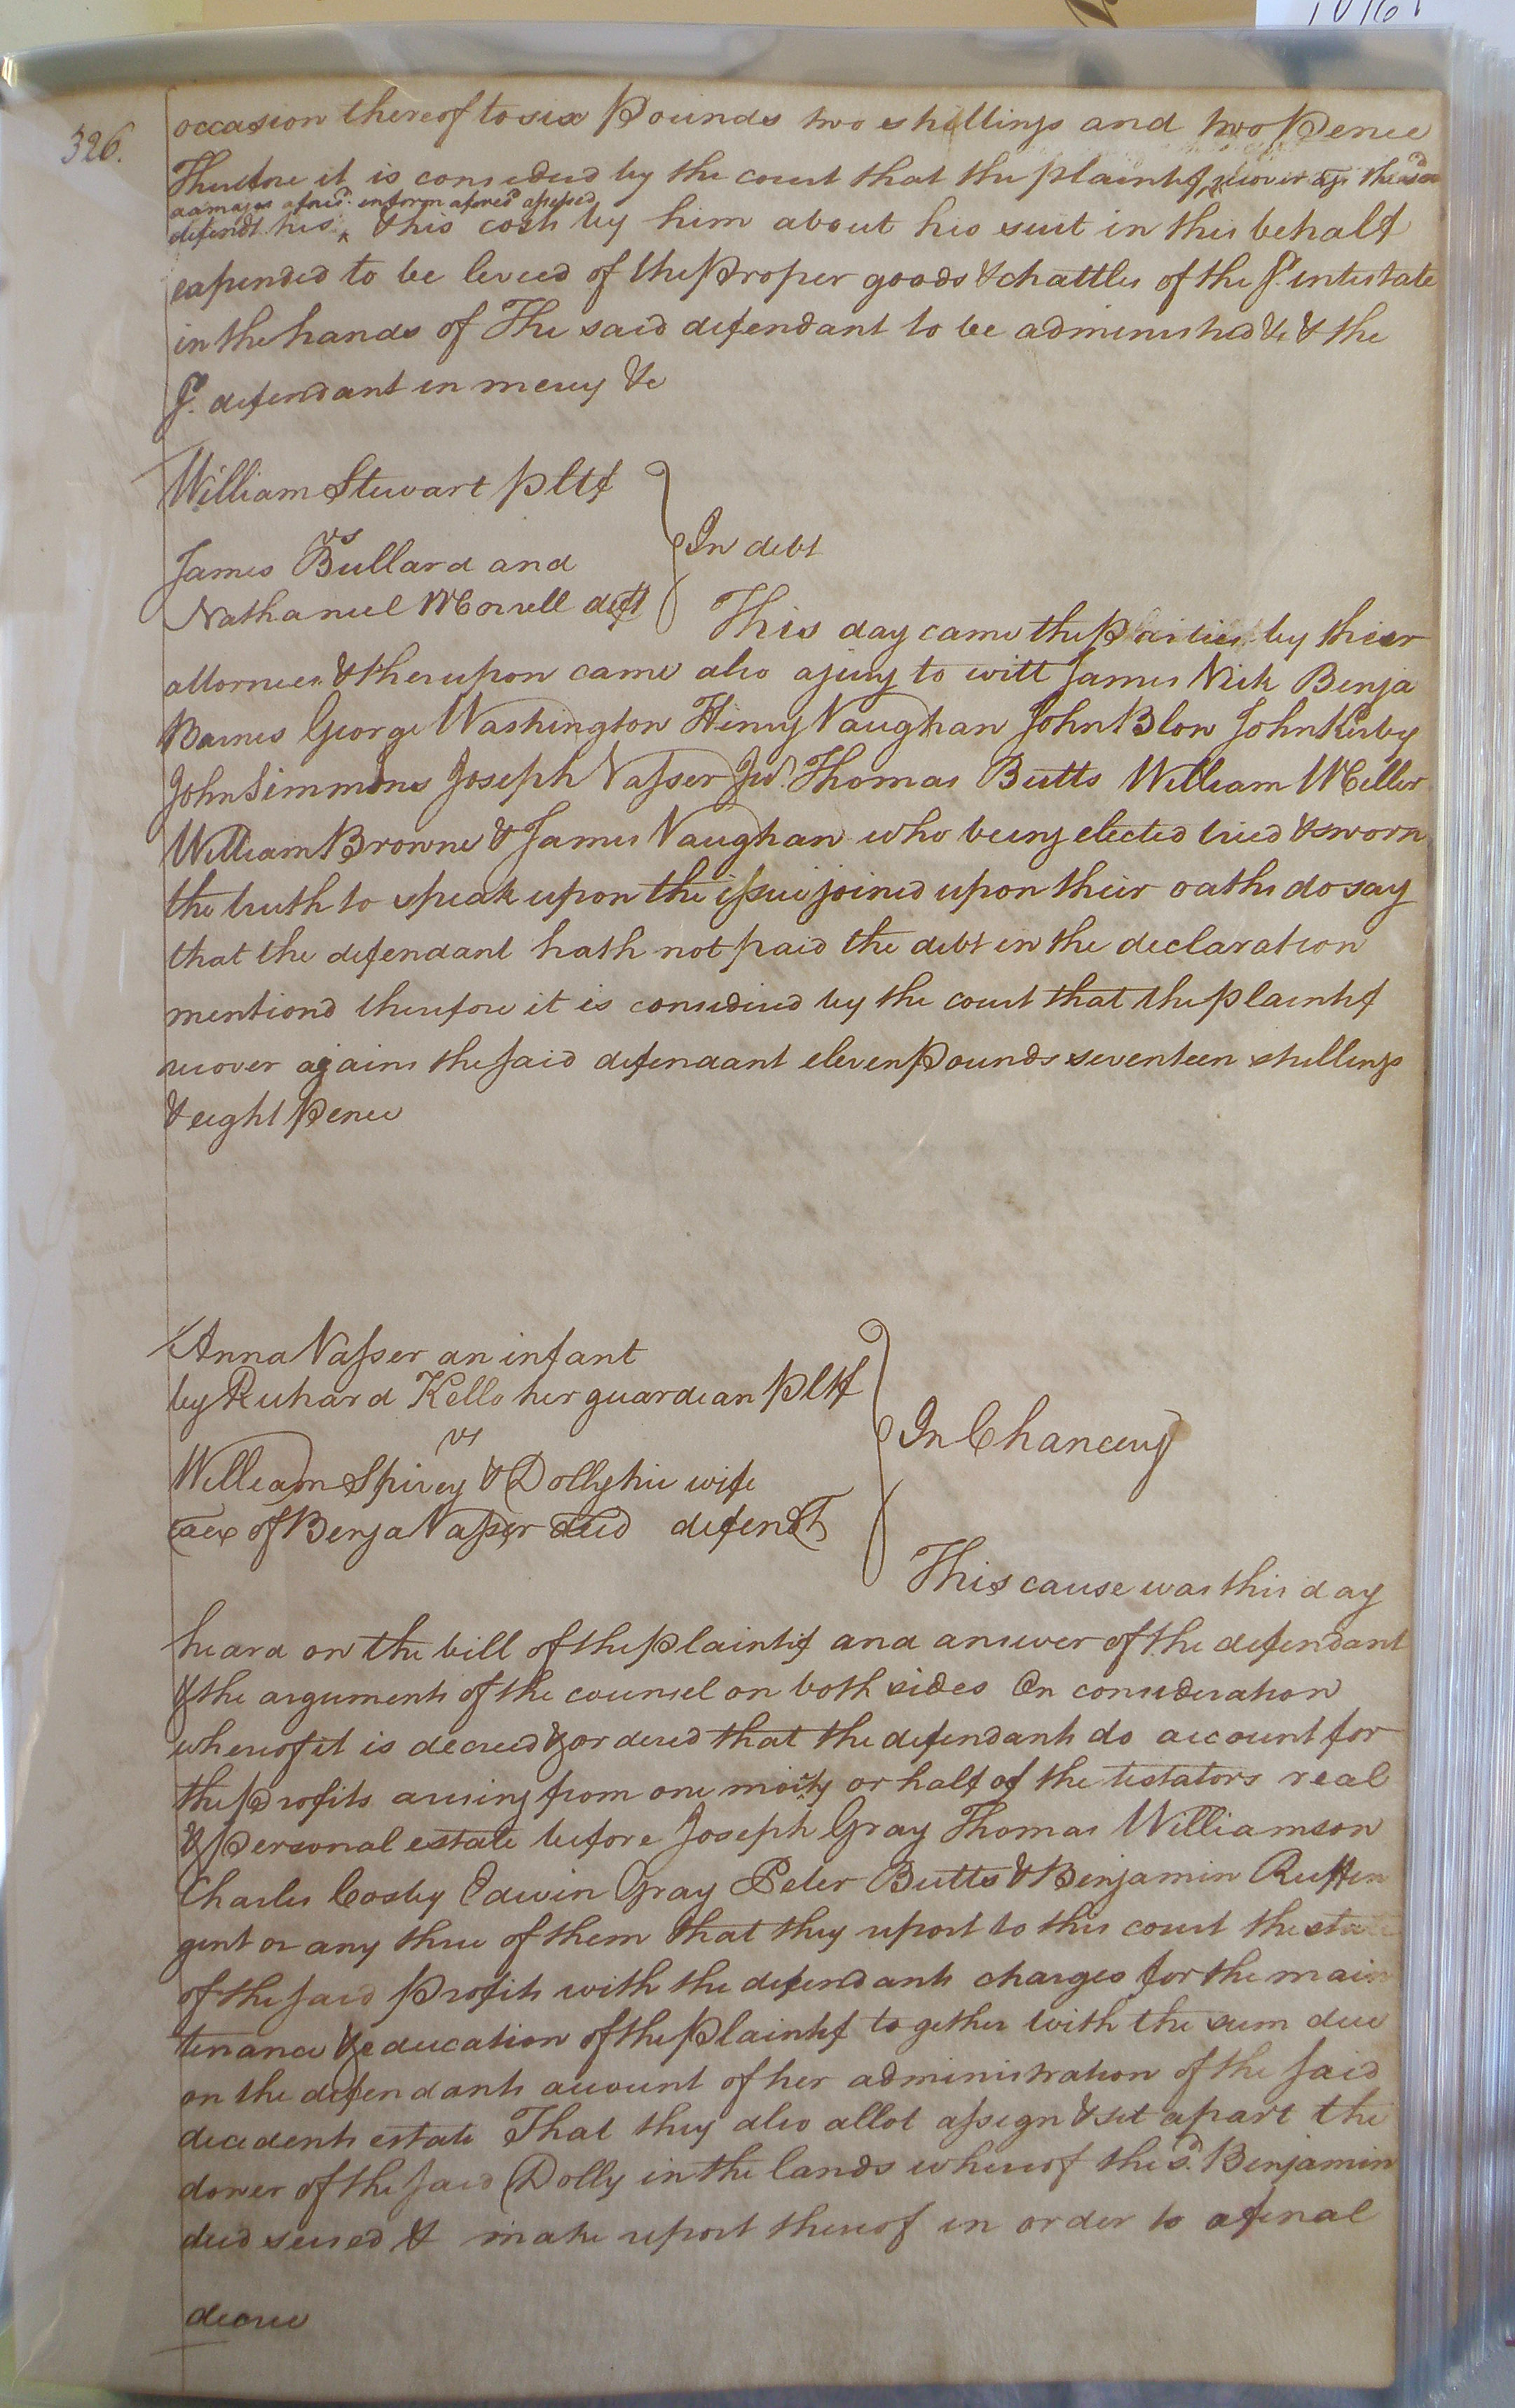 326.
occasion thereof to six Pounds two shillings and two Pence
Therefore it is considered by the court that the plaintif recover ags the sd
damages aforesd. in form aforesd assessed
defendt. his ^ & his costs by him about his suit in this behalf
expended to be levied of the Proper goods & chattles of the sd. intestate
in the hands of The said defendant to be administred &c & the
sd. defendant in mercy &c
William Stewart pltf
vs
James Bullard and
Nathaniel deft
In debt
This day came the Parties by their
attornies & thereupon came also a jury to witt James Nick Benja
Barnes George Washington Henry Vaughan John Blow John Kirby
John Simmons Joseph Vasser Jur. Thomas Butts William Miller
William Browne & James Vaughan who being elected tried & sworn
the truth to speak upon the issue joined upon their oaths do say
that the defendant hath not paid the debt in the declaration
mentiond therefore it is considered by the court that the plaintif
recover agains the said defendant eleven Pounds seventeen shillings
& eight Pence
Anna Vasser an infant
by Richard Kello her guardian pltf
vs
William Spivey & Dolly his wife
of Benja Vasser decd defendt
In Chancery
This cause was this day
heard on the bill of the plaintif and answer of the defendant
& the arguments of the counsel on both sides On consideration
whereof it is decreed & ordered that the defendants do account for
the Profits arising from one moity or half of the testators real
& personal estate before Joseph Gray Thomas Williamson
Charles Cosby Edwin Gray Peter Butts & Benjamin Ruffin
gent or any three of them that they report to this court the state
of the said Profits with the defendants charges for the main
tenance & education of the Plaintif together with the sum due
on the defendants account of her administration of the said
decedents estate That they also allot assign & set apart the
dower of the said Dolly in the lands whereof the sd. Benjamin
died seised & make report thereof in order to a final
decree